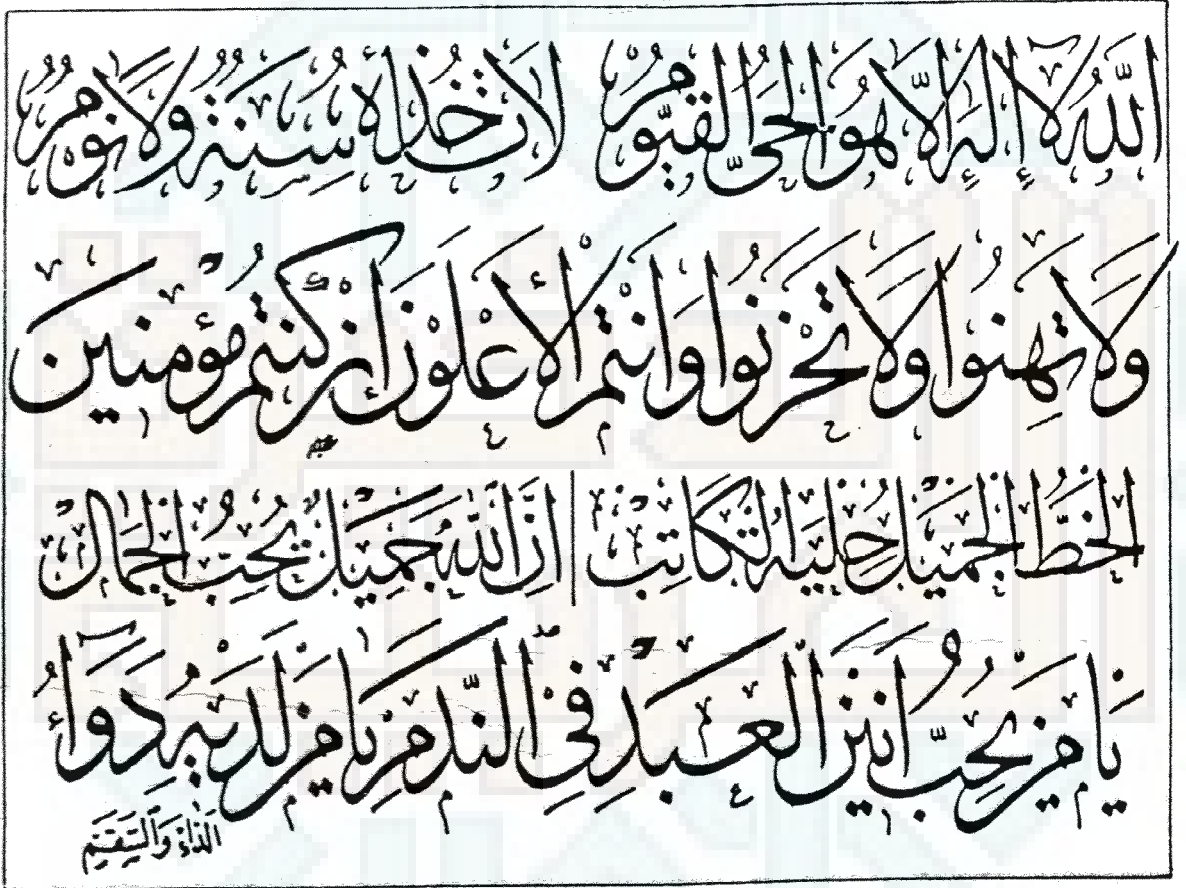 اللهُ لَا إِلٰهَ إِلَّا هُوَ الْحَيُّ الْقَيُّومُ لَا تَأْخُذُهُ سِنَةٌ وَلَا نَوْمٌ
وَلَا تَهِنُوا وَلَا تَحْزَنُوا وَأَنْتُمُ الْأَعْلَوْنَ إِنْ كُنْتُمْ مُؤْمِنِينَ
الْخَطُّ الْجَمِيلُ حِلْيَةُ الْكَاتِبِ إِنَّ اللهَ جَمِيلٌ يُحِبُّ الْجَمَالَ
يَا مَنْ يُحِبُّ أَنِينَ الْعَبْدِ فِي النَّدَمِ يَا مَنْ لَدَيْهِ دَوَاءُ
الدَّاءِ وَالسَّقَمِ